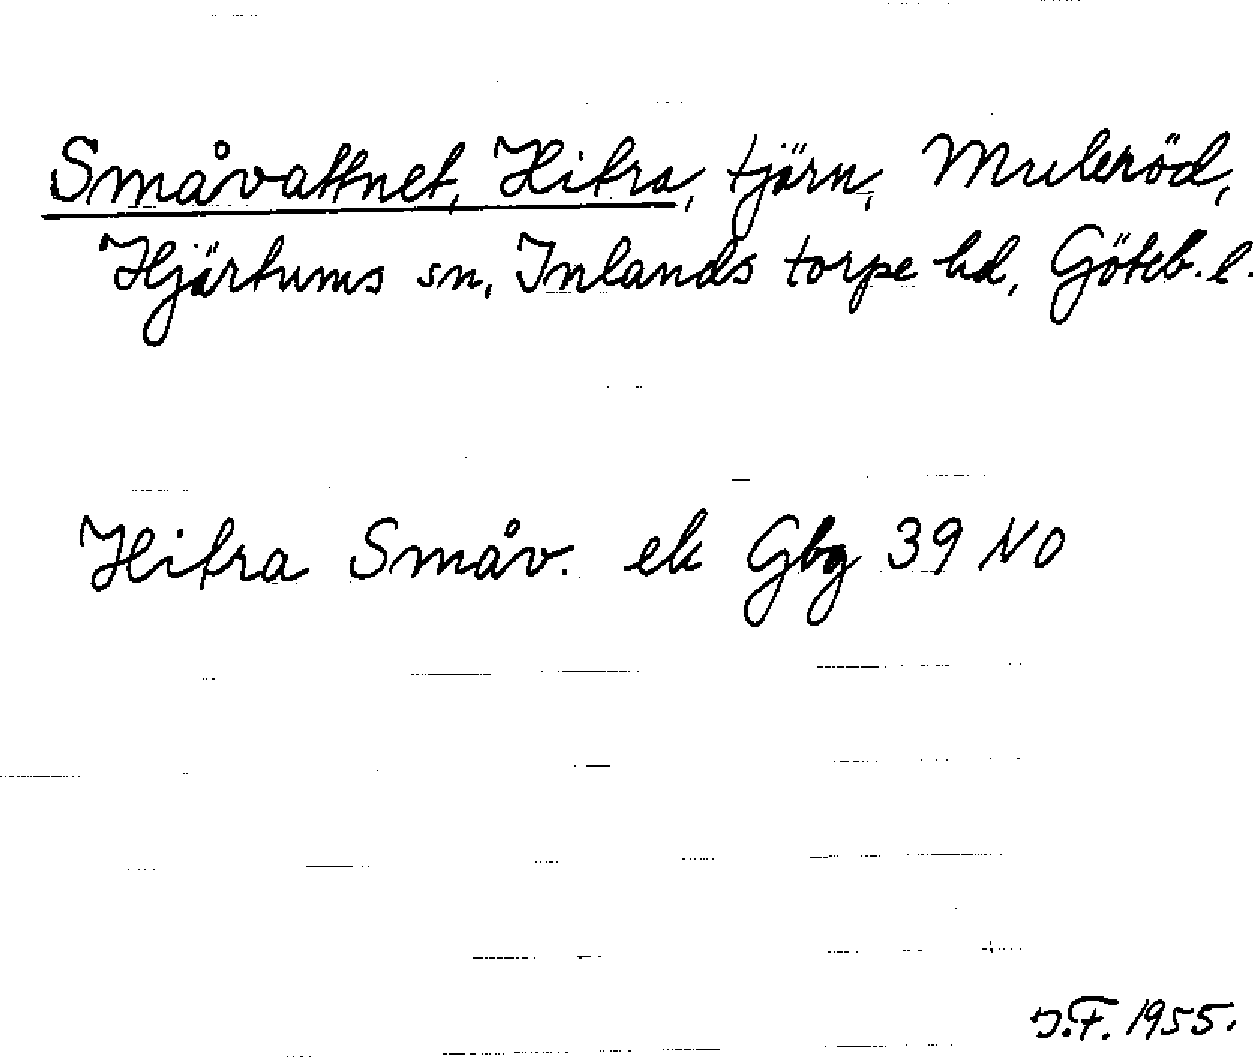 Småvattnet, Hitra, tjärn, Muleröd,
Hjärtums sn, Inlands torpe hd, Göteb. l.
Hitra Småv. ek Gbg 39 NO
J.F. 1955.